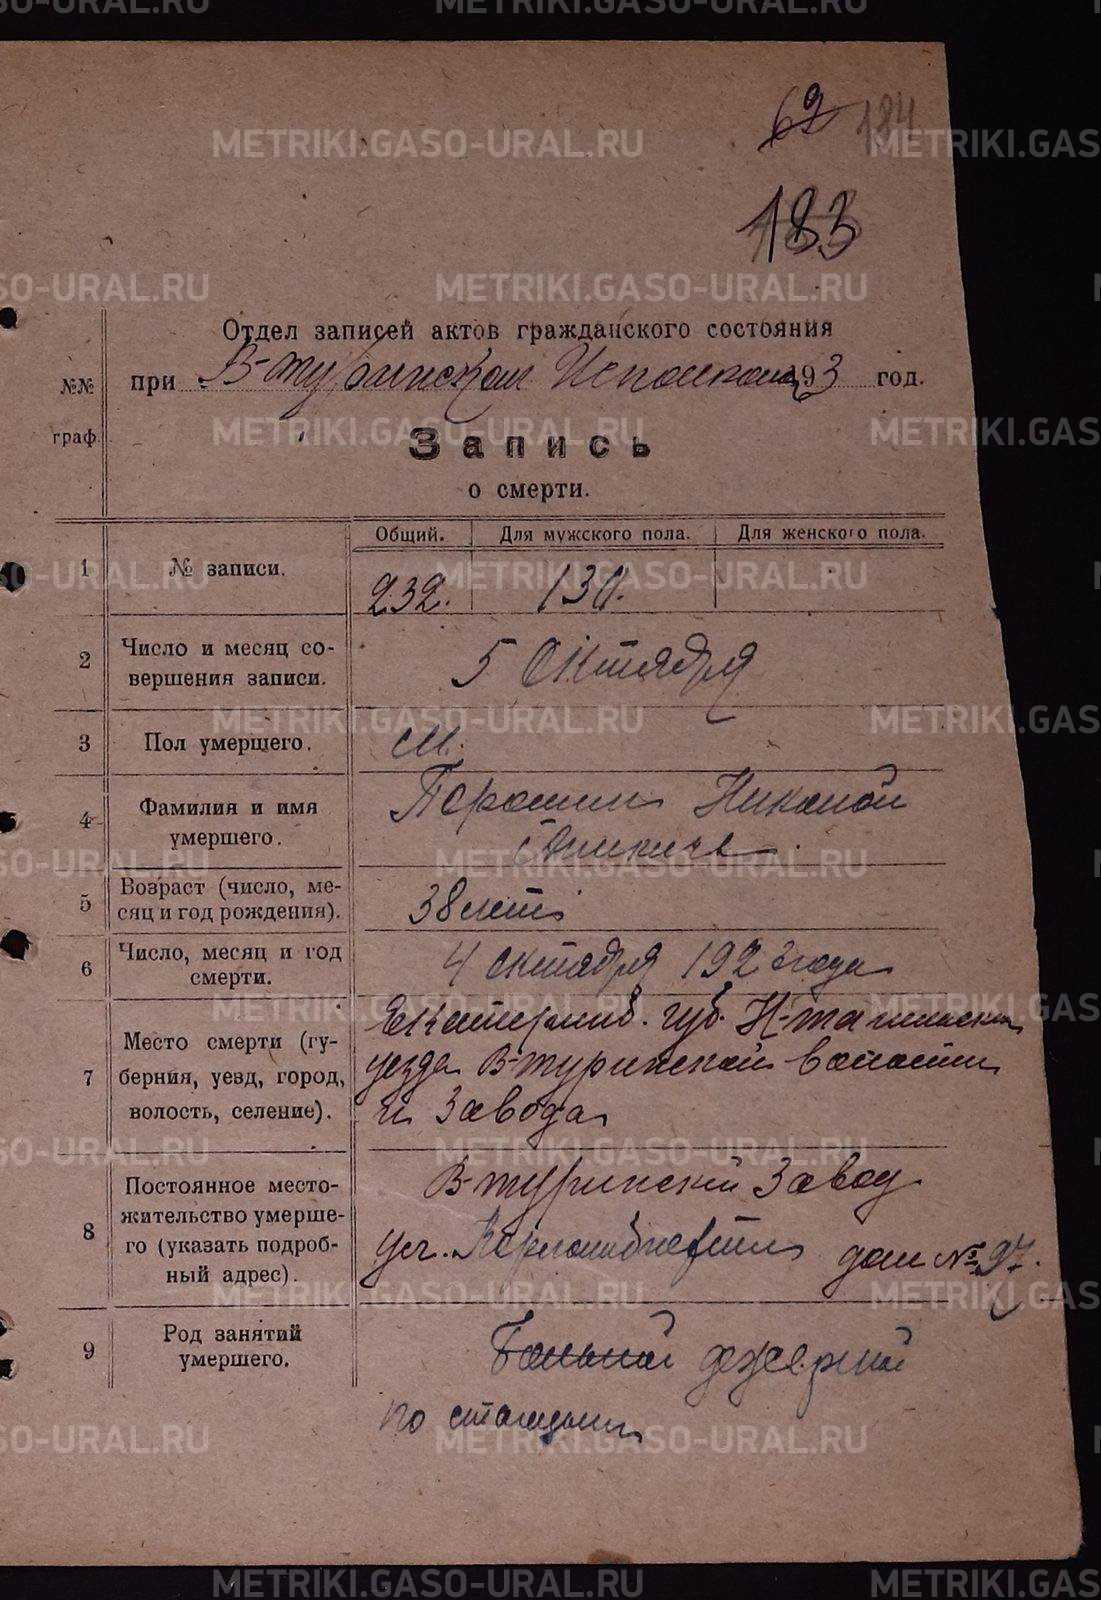 69 184
183
Отдел записей актов гражданского состояния
при В-Туринском Исполкоме 1923 год.
№№
граф.
Запись
о смерти.
Общий. Для мужского пола. Для женского пола.
1 № записи. 232. 130.
2 Число и месяц со-
вершения записи. 5 Октября
3 Пол умершего. М.
4 Фамилия и имя
умершего. Порошин Николай
5 Возраст (число, ме-
сяц и год рождения). 38 лет
6 Число, месяц и год
смерти. 4 октября 1923 года
7 Место смерти (гу-
берния, уезд, город,
волость, селение). Екатеринб. губ. Н-Тагильского
уезда В-Туринской волости
и Завода
8 Постоянное место-
жительство умерше-
го (указать подроб-
ный адрес). В-Туринский Завод
ул. дом № 97.
9 Род занятий
умершего. дежурный
по станции
METRIKI.GASO-URAL.RU